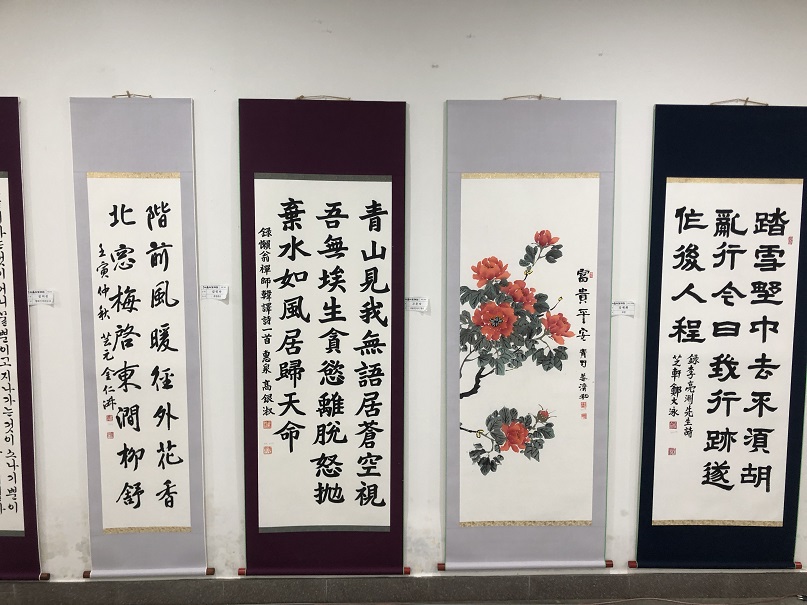 뿐이고지나가는것이
階前風暖徑外花香
北窓梅啓東澗柳舒
壬寅仲秋 芝元 金仁濟
青山見我無語居蒼空視
吾無埃生貪慾離脫怒抛
棄水如風居歸天命
錄懶翁禪師韓譯詩一首 惠泉 高銀淑
富貴平安
踏雪埜中去不須胡
亂行今日我行跡遂
作後人程
錄李亮淵先生詩
芝軒鄭大泳